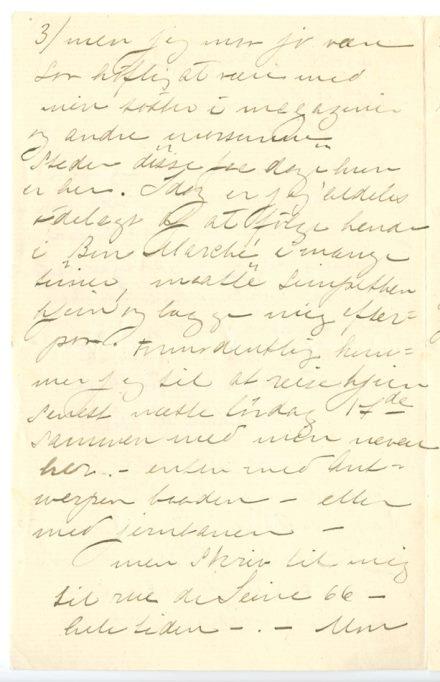 3/ men jeg maa jo være
saa høflig at være med
min søster i magaziner
og andre "morsomme"
Steder disse faa dage hun
er her. Idag er jeg aldeles
ødelagt af at følge hende
i "Bon Marché" i mange
timer, maatte simpelthen
hjem og lægge mig efter-
paa. Formodentlig kom-
mer jeg til at reise hjem
senest næste lördag 17de
sammen med min neveu
her. - enten med Ant-
werpen baaden - eller
med jernbanen -
men skriv til mig
til rue de Seine 66 -
hele tiden - . - Mon